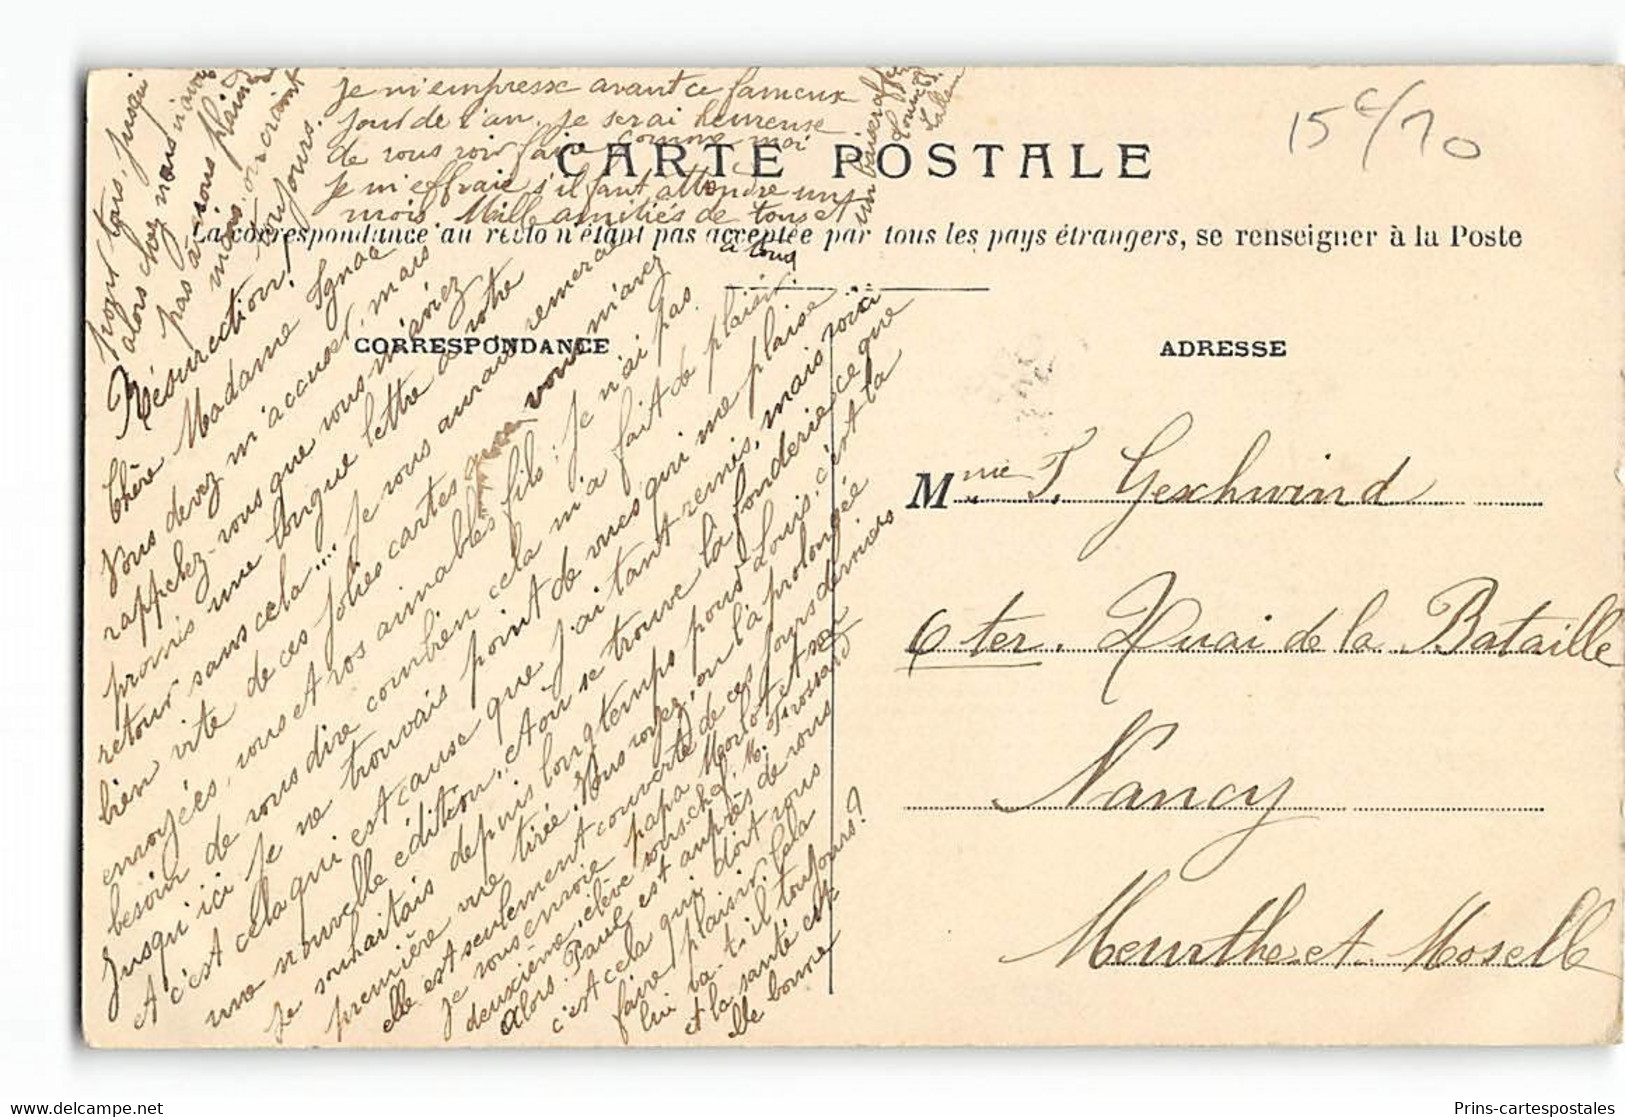 Je m'empresse avant ce fameux
jour de l'an. Je serai heureuse
de vous voir faire comme moi
Je m'effraie s'il faut attendre un
mois. Mille amitiés de tous et
un baiser
15 c/10
CARTE POSTALE
La correspondance au recto n'étant pas acceptée par tous les pays étrangers, se renseigner à la Poste
CORRESPONDANCE
ADRESSE
Résurrection!
Chère Madame Ignace
Vous devez m'accuser, mais
rappelez-vous que vous m'aviez
promis une longue lettre à votre
retour sans cela.... Je vous aurais remercié
bien vite de ces jolies cartes que vous m'avez
envoyées, vous et vos aimables fils; je n'ai pas
besoin de vous dire combien cela m'a fait de plaisir
à tous
Jusqu'ici je ne trouvais point de vues qui me plaise
et c'est cela qui est cause que j'ai tant remis, mais voici
une nouvelle édition, et où se trouve la fonderie ce que
je souhaitais depuis longtemps pour Louis. c'est la
première vue tirée. Vous voyez, on l'a prolongée
elle est seulement couverte de ces jours derniers
je vous envoie papa Marlot et son
deuxième élève sous-chef, M. Frossard
Alors Paul est auprès de vous
c'est cela qui doit vous
faire plaisir. Cela
lui va-t-il toujours?
et la santé est-
elle bonne
pour tous, jusqu'
alors chez nous n'avons
pas à nous plaindre
mais, on craint
toujours.
Mme J. Geschwind
6 ter. Quai de la Bataille
Nancy
Meurthe et Moselle
Prins-cartespostales